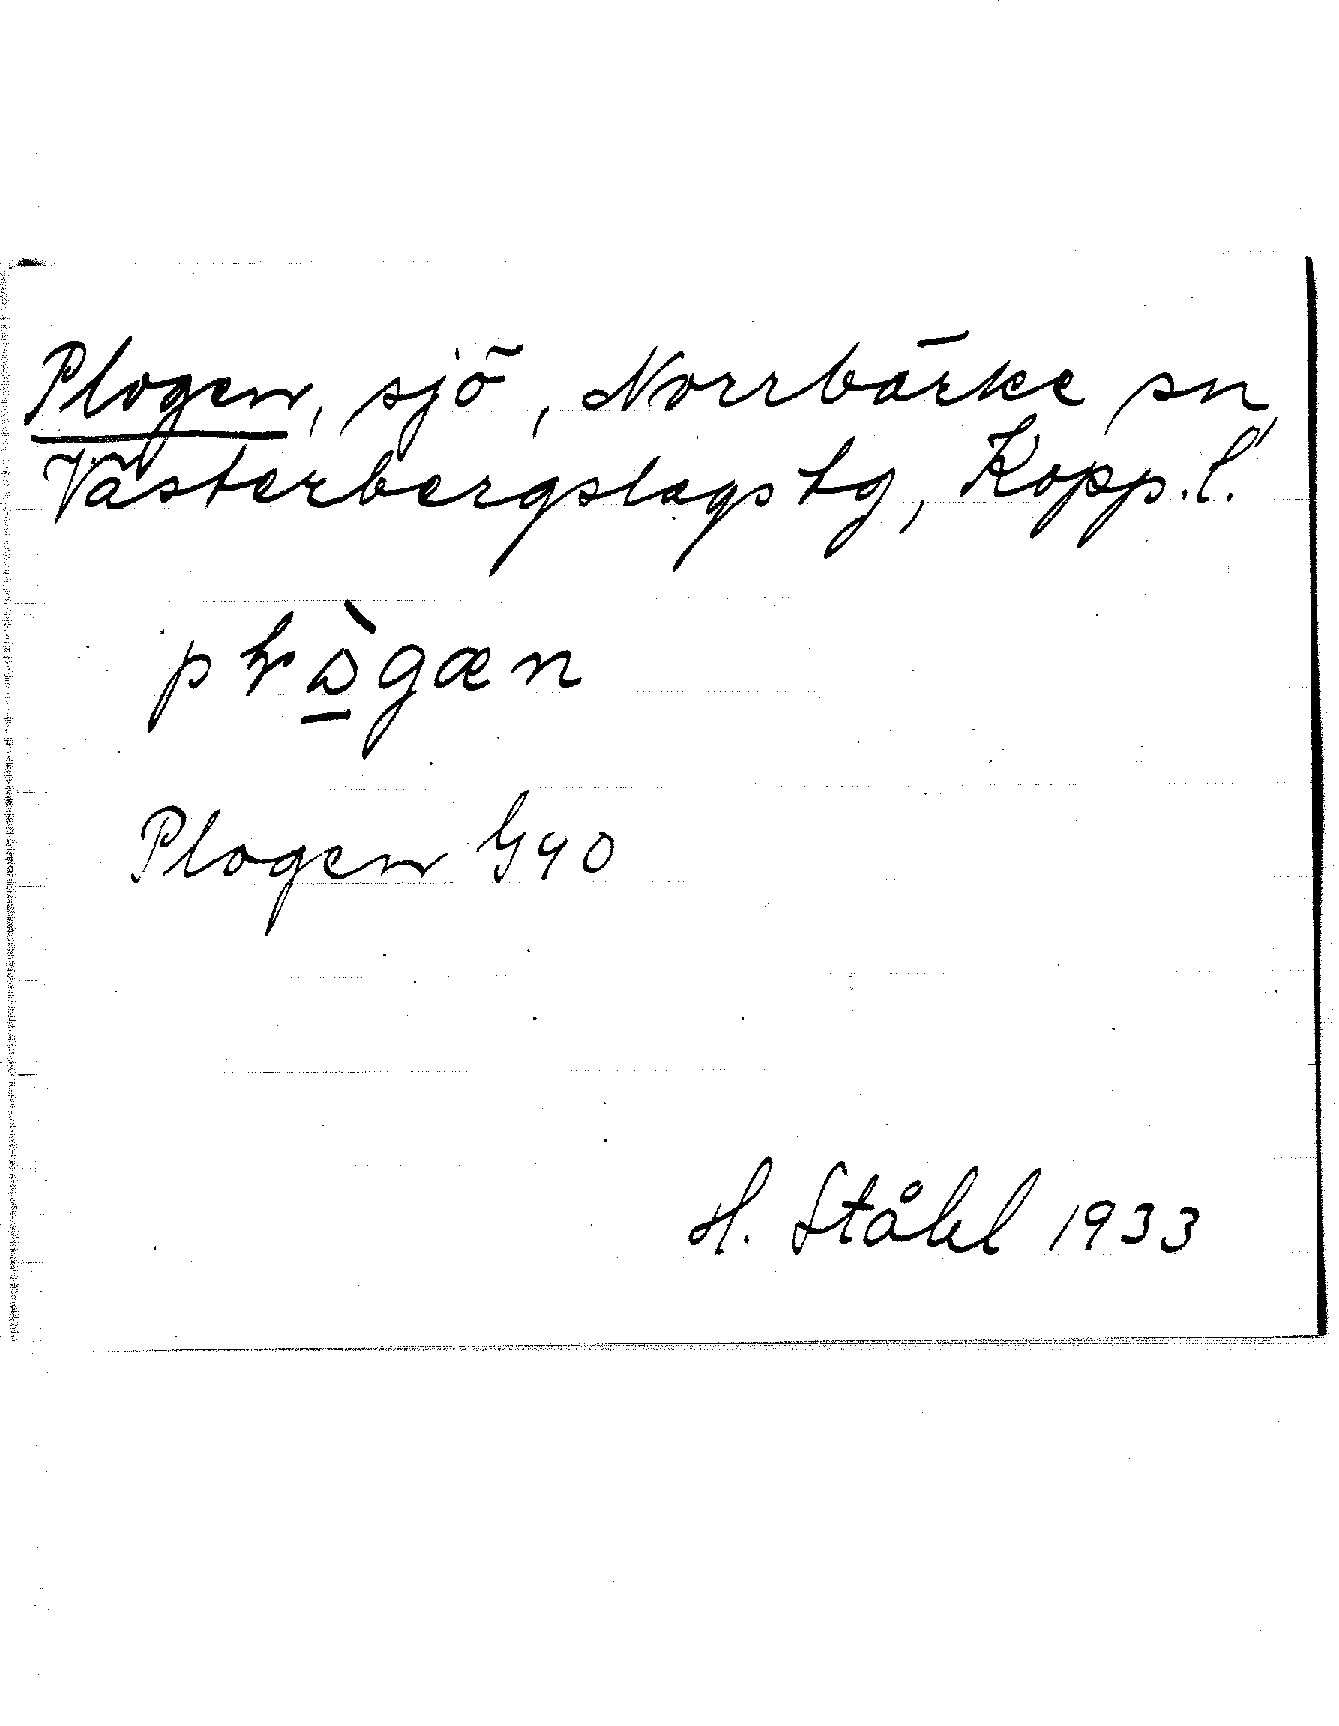 Plogen, sjö, Norrbärke sn,
Västerbergslags tg, Kopp. l.
Plogen G40
H. Ståhl 1933